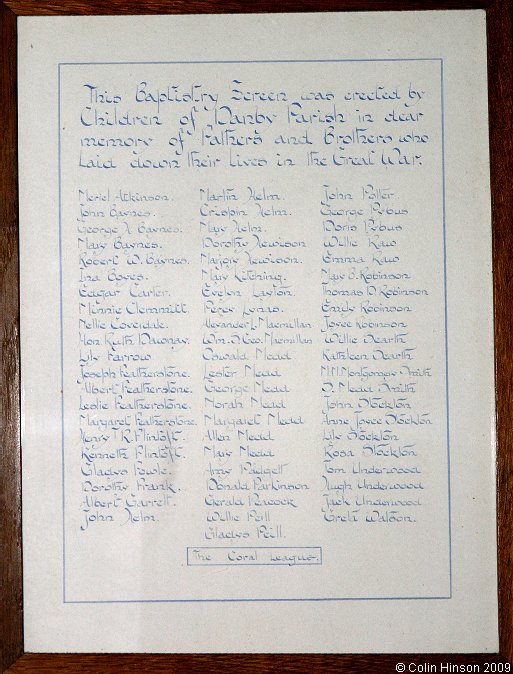 This Baptistry Screen was erected by
Children of Danby Parish in dear
memory of Fathers and Brothers who
laid down their lives in the Great War.
Meriel Atkinson.
John Baynes.
George A Baynes.
Mary Baynes.
Robert W. Baynes.
Ina Boyes.
Edgar Carter.
Minnie Clemmitt.
Nellie Coverdale.
Hon Ruth Dawnay.
Lily Farrow
Joseph Featherstone.
Albert Featherstone.
Leslie Featherstone.
Margaret Featherstone.
Henry R. Flintoft.
Kenneth Flintoft.
Gladys Fowle.
Dorothy Frank.
Albert Garrett.
John Helm.
Martin Helm.
Crispin Helm.
Mary Helm.
Dorothy Hewison
Marjory Hewison.
Mary Kitching.
Evelyn Layton
Percy Lynas.
Alexander L. Macmillan
Wm. D. Geo. Macmillan
Oswald Mead
Lester Mead
George Mead
Norah Mead
Margaret Mead
Allen Mead
Mary Mead
Amy Padgett
Donald Parkinson
Gerald Peacock
Willie Peill
Gladys Peill.
John Potter.
George Pybus
Doris Pybus
Willie Raw
Emma Raw
Mary B. Robinson
Thomas D Robinson
Emily Robinson
Joyce Robinson
Willie Scarth
Kathleen Scarth
M.M. Montgomery Smith
D. Mead Smith
John Stockton
Anne Joyce Stockton
Lily Stockton
Rosa Stockton
Tom Underwood
Hugh Underwood
Jack Underwood
Greta Watson.
The Coral League.
© Colin Hinson 2009